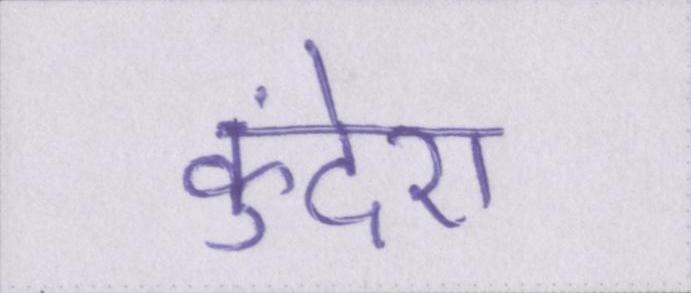 कुंदेरा